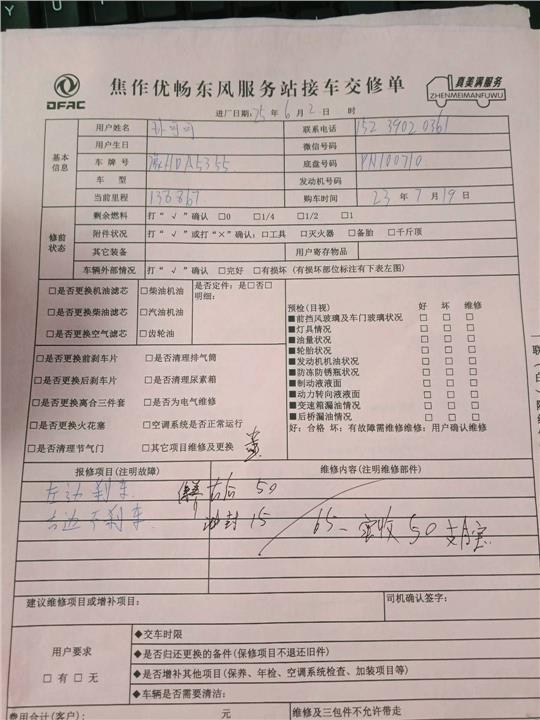 DFAC
焦作优畅东风服务站接车交修单
真美满服务
ZHENMEIMANFUWU
进厂日期:25年 6月 2日 时
基本信息
用户姓名
联系电话 152 3902 0361
用户生日
微信号码
车牌号 HDA5355
底盘号码 PN100710.
车型
发动机号码
当前里程 136867
购车时间 23 年 7 月 19 日
修前状态
剩余燃料 打“ √ ”确认 □0 □1/4 □1/2 □1
附件状况 打“ √ ”或打“×”确认:□工具 □灭火器 □备胎 □千斤顶
其它装备
用户寄存物品
车辆外部情况 打“ √ ”确认 □完好 □有损坏 (有损坏部位标注有下表左图)
□是否更换机油滤芯 □柴油机油
□是否更换柴油滤芯 □汽油机油
□是否更换空气滤芯 □齿轮油
是否定件:是□否□
明细:
□是否更换前刹车片 □是否清理排气筒
□是否更换后刹车片 □是否清理尿素箱
□是否更换离合三件套 □是否为电气维修
□是否更换火花塞 □空调系统是否正常运行
□是否清理节气门 □其它项目维修及更换
预检(目视) 好 坏 维修
■前挡风玻璃及车门玻璃状况 □ □ □
■灯具情况 □ □ □
■油量状况 □ □ □
■轮胎状况 □ □ □
■发动机机油状况 □ □ □
■防冻防锈瓶状况 □ □ □
■制动液液面 □ □ □
■动力转向液液面 □ □ □
■变速箱漏油情况 □ □ □
■后桥漏油情况 □ □ □
好:合格 坏:有故障需维修维修:用户确认维修
报修项目(注明故障)
维修内容(注明维修部件)
左边刹车
右后 50
右边不刹车
油封 15
65 实收 50 支付宝
建议维修项目或增补项目:
司机确认签字:
用户要求
□有 □无
◆交车时限
◆是否归还更换的备件(保修项目不退还旧件)
◆是否增补其他项目(保养、年检、空调系统检查、加装项目等)
◆车辆是否需要清洁:
费用合计(客户): 元
维修及三包件不允许带走
联